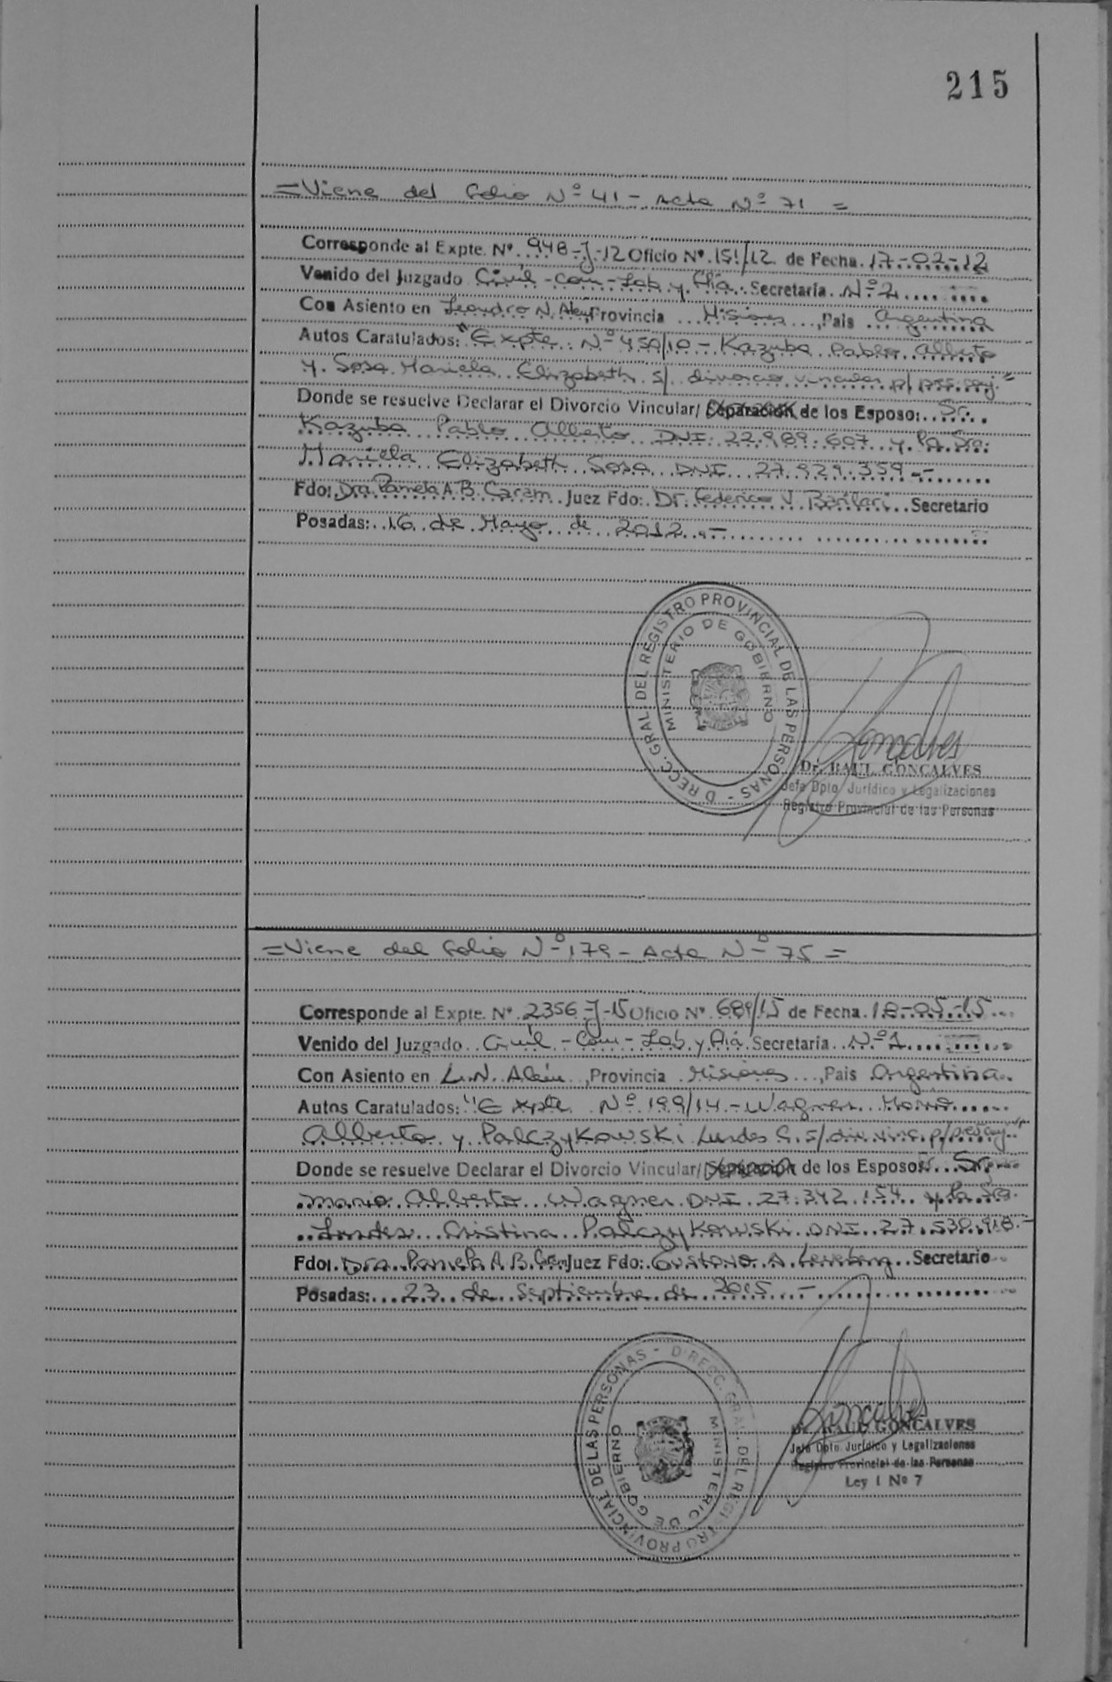 215
= Viene del folio Nº 41 - Acta Nº 71 =
Corresponde al Expte. Nº 948-J-12 Oficio Nº 151/12 de Fecha 17-02-12
Venido del Juzgado Civil - Com - Lab. y Flia. Secretaria Nº 2
Con Asiento en Leandro N. Alem Provincia Misiones, Pais Argentina
Autos Caratulados: "Expte. Nº 450/10 - Kazuba Pablo Alberto
y Sosa Mariela Elizabeth s/ divorcio vincular p/ pres. conj."
Donde se resuelve Declarar el Divorcio Vincular/ Separación de los Esposo: Sr.
Kazuba Pablo Alberto DNI 22.989.607 y la Sra.
Mariela Elizabeth Sosa DNI 27.929.359 --
Fdo: Dra. Pamela A. B. Caram Juez Fdo: Dr. Federico V. Secretario
Posadas: 16 de Mayo de 2012 -
DIRECC. GRAL. DEL REGISTRO PROVINCIAL DE LAS PERSONAS -
MINISTERIO DE GOBIERNO
Goncalves
Dr. RAUL GONCALVES
Jefe Dpto. Jurídico y Legalizaciones
Registro Provincial de las Personas
= Viene del folio Nº 179 - Acta Nº 75 =
Corresponde al Expte. Nº 2356-J-15 Oficio Nº 689/15 de Fecha 18-05-15
Venido del Juzgado Civil - Com - Lab. y Flia. Secretaria Nº 1
Con Asiento en L. N. Alem, Provincia Misiones, Pais Argentina
Autos Caratulados: "Expte. Nº 199/14 - Wagner Mario
Alberto y Palczykowski Lurdes C. s/ div. vinc. p/ pres. conj."
Donde se resuelve Declarar el Divorcio Vincular/ Separación de los Esposos: Sr.
Mario Alberto Wagner DNI 27.342.154 y la Sra.
Lurdes Cristina Palczykowski DNI 27.530.918 -
Fdo: Dra. Pamela A. B. Juez Fdo: Gustavo A. Secretario
Posadas: 23 de Septiembre de 2015 -
DIRECC. GRAL. DEL REGISTRO PROVINCIAL DE LAS PERSONAS -
MINISTERIO DE GOBIERNO
Goncalves
Dr. RAUL GONCALVES
Jefe Dpto. Jurídico y Legalizaciones
Registro Provincial de las Personas
Ley I Nº 7